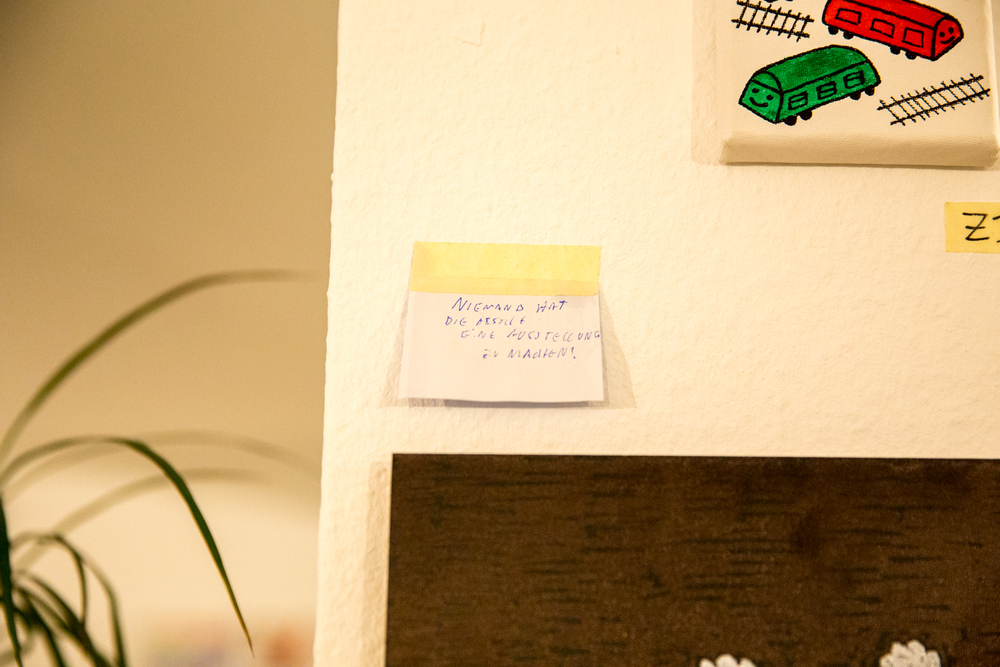 NIEMAND HAT
DIE ABSICHT
EINE AUSSTELLUNG
ZU MACHEN!
Z